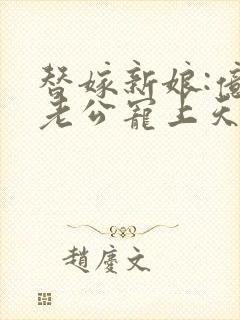 替嫁新娘:億
老公寵上天
趙慶文